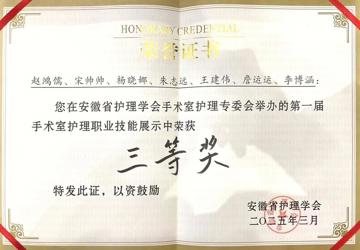 HONORARY CREDENTIAL
荣誉证书
赵鸿儒、宋帅帅、杨晓娜、朱志远、王建伟、詹运运、李博涵：
您在安徽省护理学会手术室护理专委会举办的第一届
手术室护理职业技能展示中荣获
三等奖
特发此证，以资鼓励
安徽省护理学会
二〇二五年三月